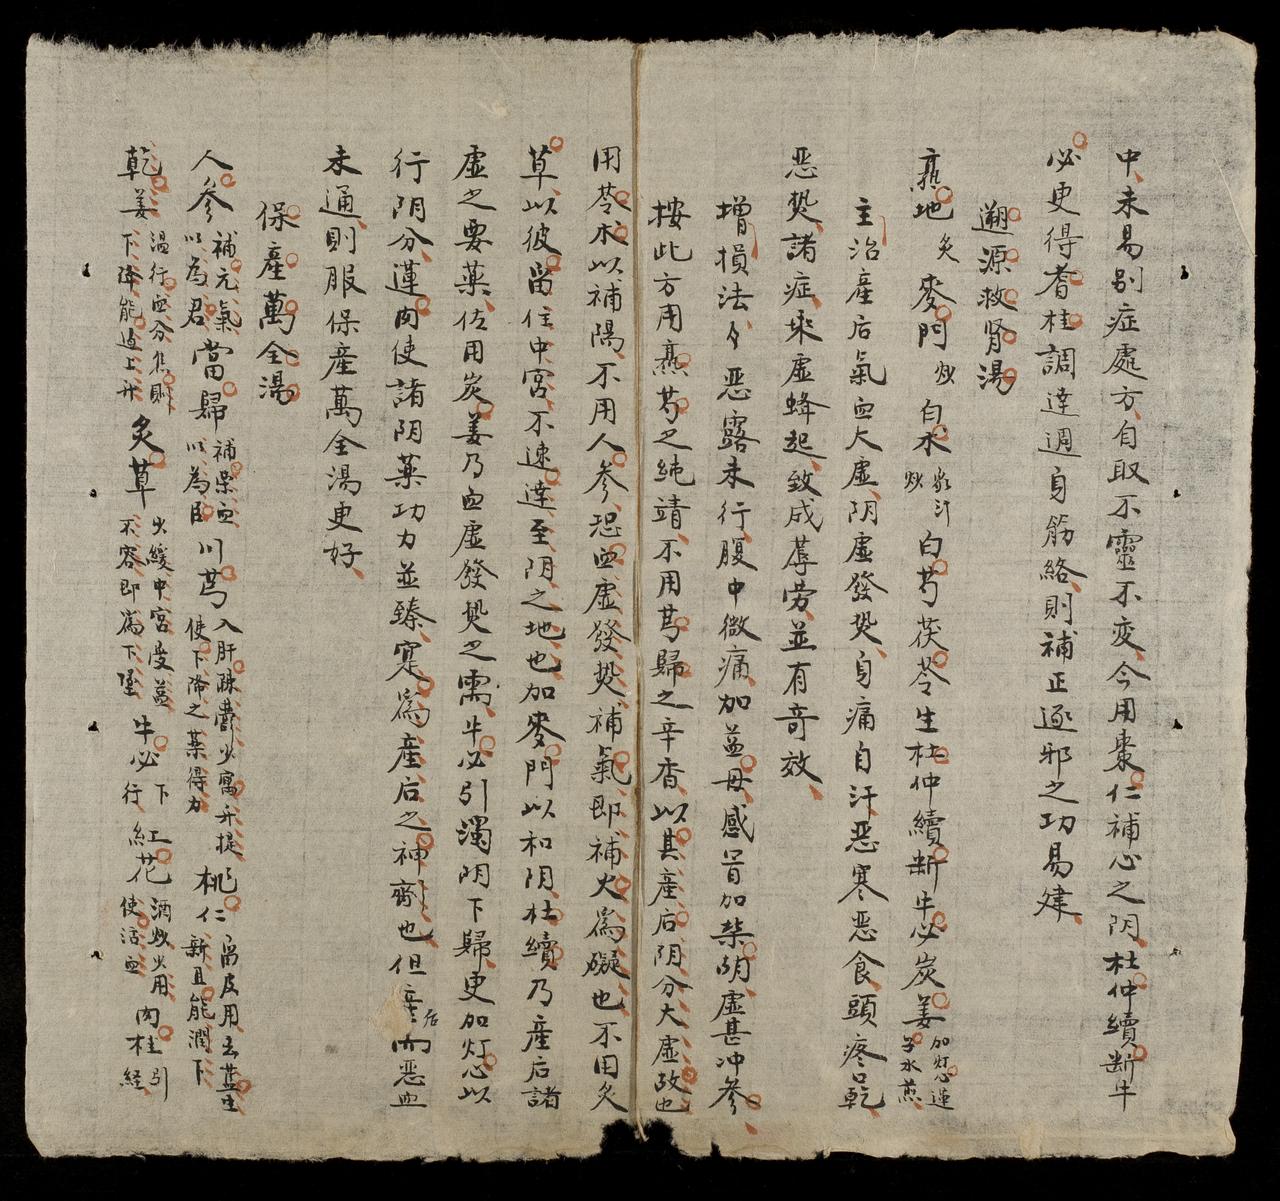 中未易别症處方自取不靈不変今用棗仁補心之阴杜仲續断牛
必更得耆桂調達週身筋絡則補正逐邪之功易建
遡源救肾湯
熟地炙麥門炒白朮炒白芍茯苓生杜仲續断牛必炭姜加灯心蓮子水煎
主治產后氣血大虚阴虚發熱身痛自汗惡寒惡食頭疼口乾
恶熱諸症乘虚蜂起致成蓐劳並有竒效
增損法惡露未行腹中微痛加益母感冒加柴胡虚甚冲參
按此方用熟芍之純靖不用芎歸之辛香以其產后阴分大虚故也
用苓朮以補陽不用人參恐血虚發熱補氣即補火為礙也不用炙
草以彼畄住中宮不速達至阴之地也加麥門以和阴杜續乃產后諸
虚之要藥佐用炭姜乃血虚發熱之需牛必引濁阴下歸更加灯心以
行阴分蓮肉使諸阴藥功力並臻寔為產后之神劑也但產后而惡血
未通則服保產萬全湯更好
保產萬全湯
人參補元氣以為君當歸補榮血以為臣川芎入肝踈鬱火寓升提使下降之藥得力桃仁畄皮用去並生新且能潤下
乾姜温行血分焦則下降能過上升炙草火緩中宮受益不容即為下墜牛必下行紅花酒炒少用使活血肉桂引経